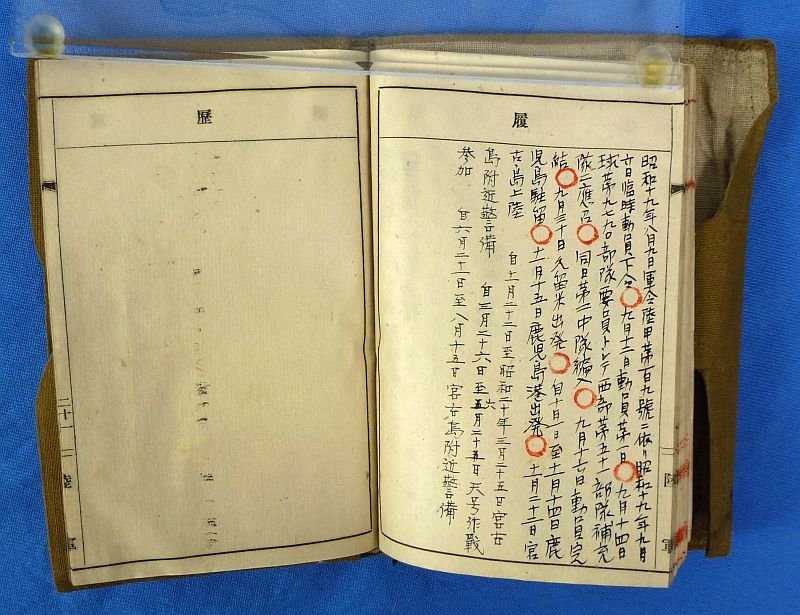 履
昭和十九年八月九日軍令陸甲第百九號ニ依リ昭和十九年九月
六日臨時動員下令○九月十二日動員第一日○九月十四日
球第九七九〇部隊要員トシテ西部第五十一部隊補充
隊ニ應召○同日第二中隊編入○九月十六日動員完
結○九月三十日久留米出発○自十月一日至十一月十四日鹿
児島駐留○十一月十五日鹿児島港出発○十一月二十二日宮
古島上陸
自十一月二十二日至昭和二十年三月二十五日宮古
島附近警備
自三月二十六日至六月二十五日天号作戰
参加
自六月二十二日至八月十五日宮古島附近警備
陸
軍
歷
二十一
陸
軍